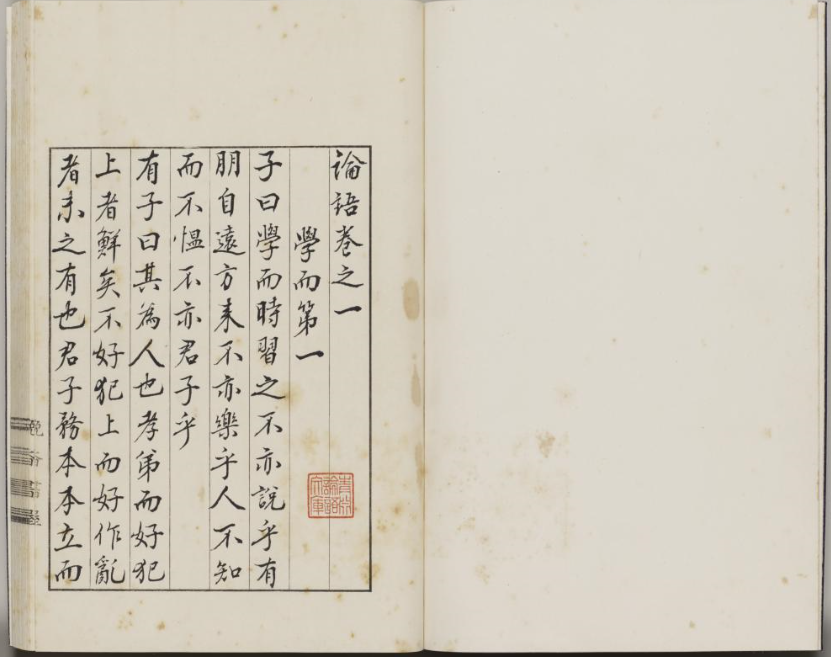 論語卷之一
學而第一
子曰學而時習之不亦說乎有
朋自遠方来不亦樂乎人不知
而不慍不亦君子乎
有子曰其為人也孝弟而好犯
上者鮮矣不好犯上而好作亂
者未之有也君子務本本立而